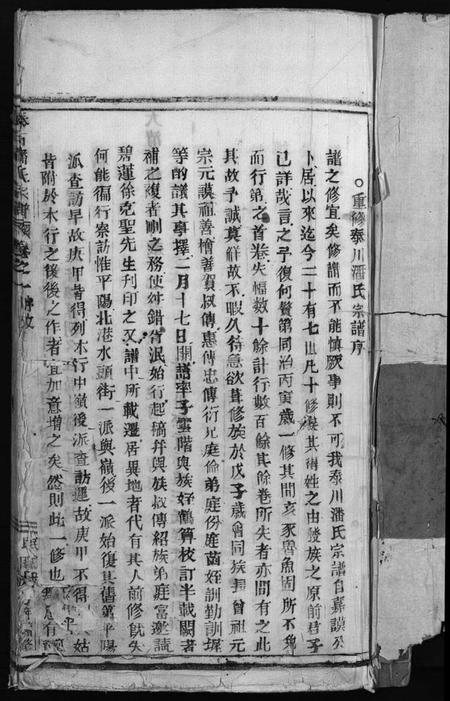 ○重修泰川潘氏宗譜序
譜之修宜矣修譜而不能慎厥事則不可我泰川潘氏宗譜自嘉謨公
卜居以來迄今二十有七世凡十修矣其得姓之由發族之原前君子
已詳哉言之予復何贅第同治丙寅歲一修其間亥豕魯魚固所不免
而行第之首卷失幅數十餘計行數百餘其餘卷所失者亦間有之此
其故予誠莫解故不暇久待急欲葺修族於戊子歲會同族長曾祖元
宗元謨祖善檜善賀叔傳惠傳忠傳衍兄庭倫弟庭份庭菌姪訓勤訓墀
等酌議其事擇二月十七日開譜率子雲階與族姪鶴算校訂半載闕者
補之複者刪之務使紕錯皆泯始行起稿幷與族叔傳紹族弟庭富邀請
碧蓮徐克聖先生刊印之又譜中所載遷居異地者代有其人前修旣失
何能徧行察訪惟平陽北港水頭街一派與嶺後一派始復其舊第平陽
派查訪早故庚甲皆得列木行中嶺後派查訪遲故庚甲不得 姑
皆附於木行之後後之作者宜加意增之矣然則此一修也
潘氏宗譜 卷之一 序